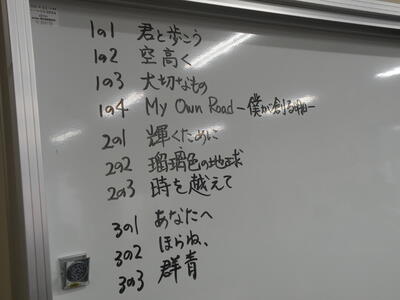 1の1 君と歩こう
1の2 空高く
1の3 大切なもの
1の4 My Own Road -僕が創る明日-
2の1 輝くために
2の2 瑠璃色の地球
2の3 時を越えて
3の1 あなたへ
3の2 ほらね、
3の3 群青